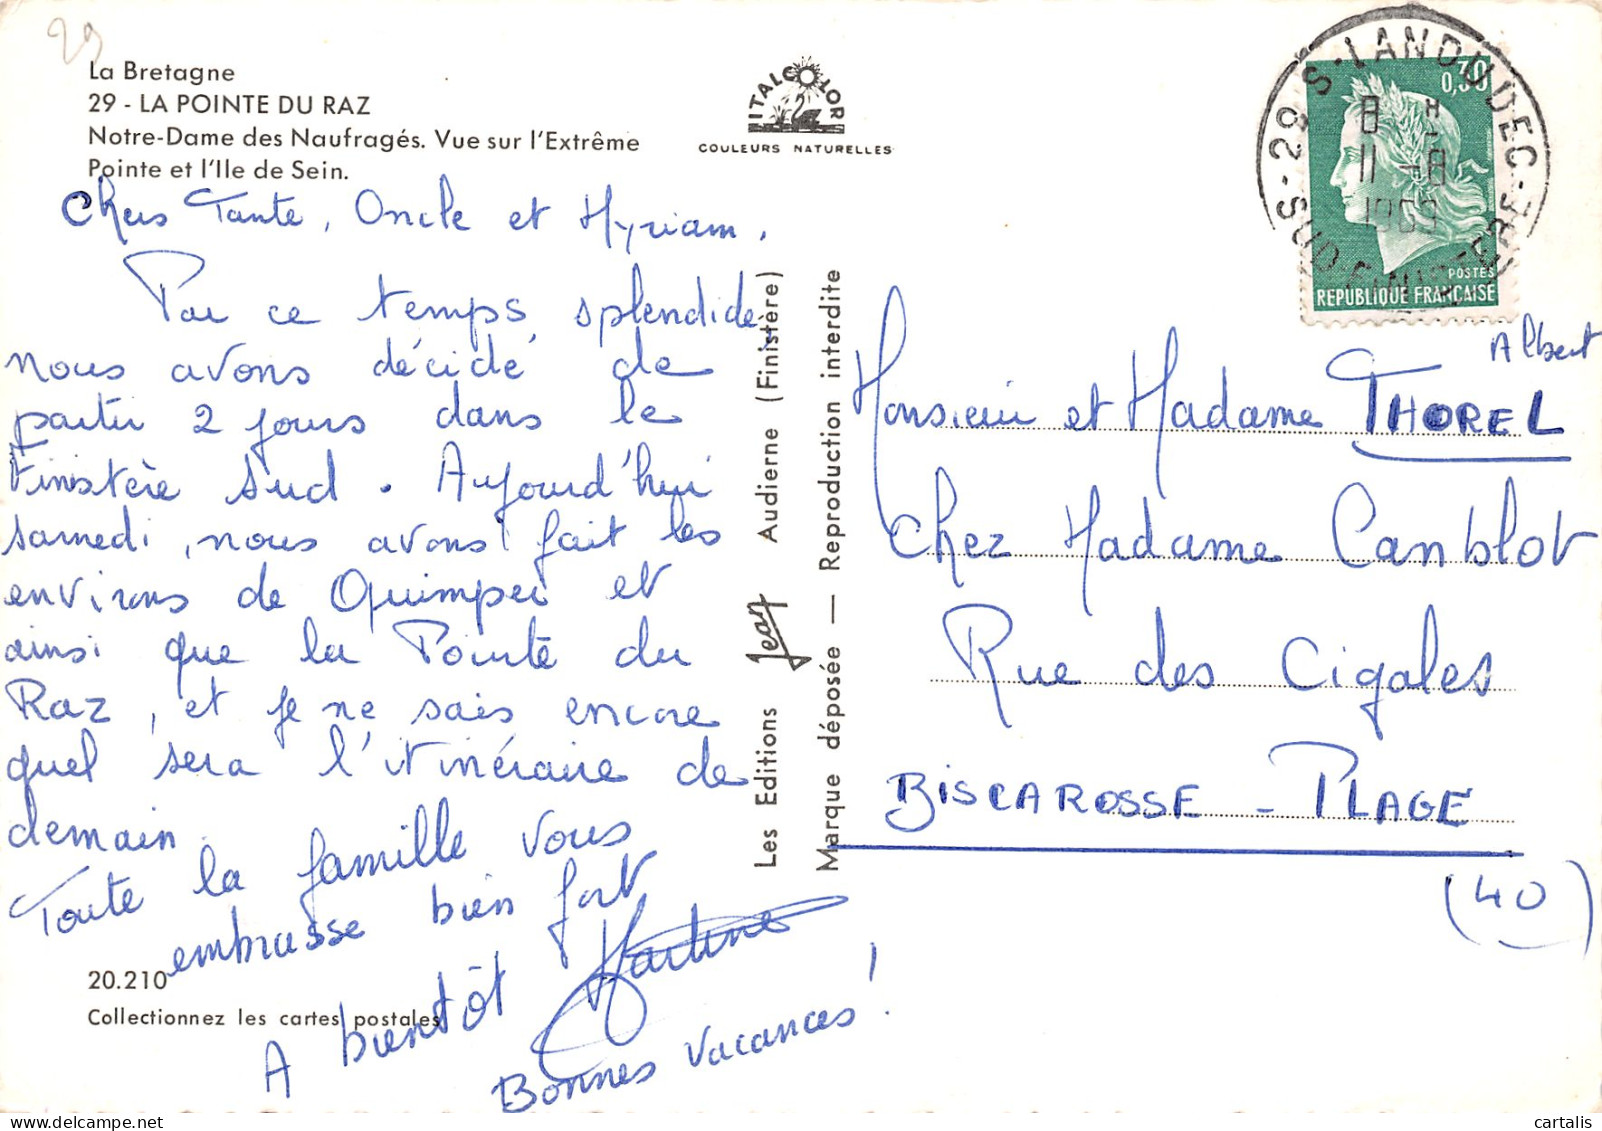 29
La Bretagne
29 - LA POINTE DU RAZ
Notre-Dame des Naufragés. Vue sur l'Extrême
Pointe et l'Ile de Sein.
Chers Tante, Oncle et Myriam,
Par ce temps splendide
nous avons décidé de
partir 2 jours dans le
Finistère Sud. Aujourd'hui
samedi, nous avons fait les
environs de Quimper et
ainsi que la Pointe du
Raz, et je ne sais encore
quel sera l'itinéraire de
demain.
Toute la famille vous
embrasse bien fort
A bientôt Martine
Bonnes vacances !
20.210
Collectionnez les cartes postales
ITALCOLOR
COULEURS NATURELLES
Les Editions Jean Audierne (Finistère)
Marque déposée — Reproduction interdite
0,30
POSTES
REPUBLIQUE FRANÇAISE
8 H
11 -8
1969
Albert
Monsieur et Madame THOREL
Chez Madame Canblot
Rue des Cigales
BISCAROSSE - PLAGE
(40)
cartalis